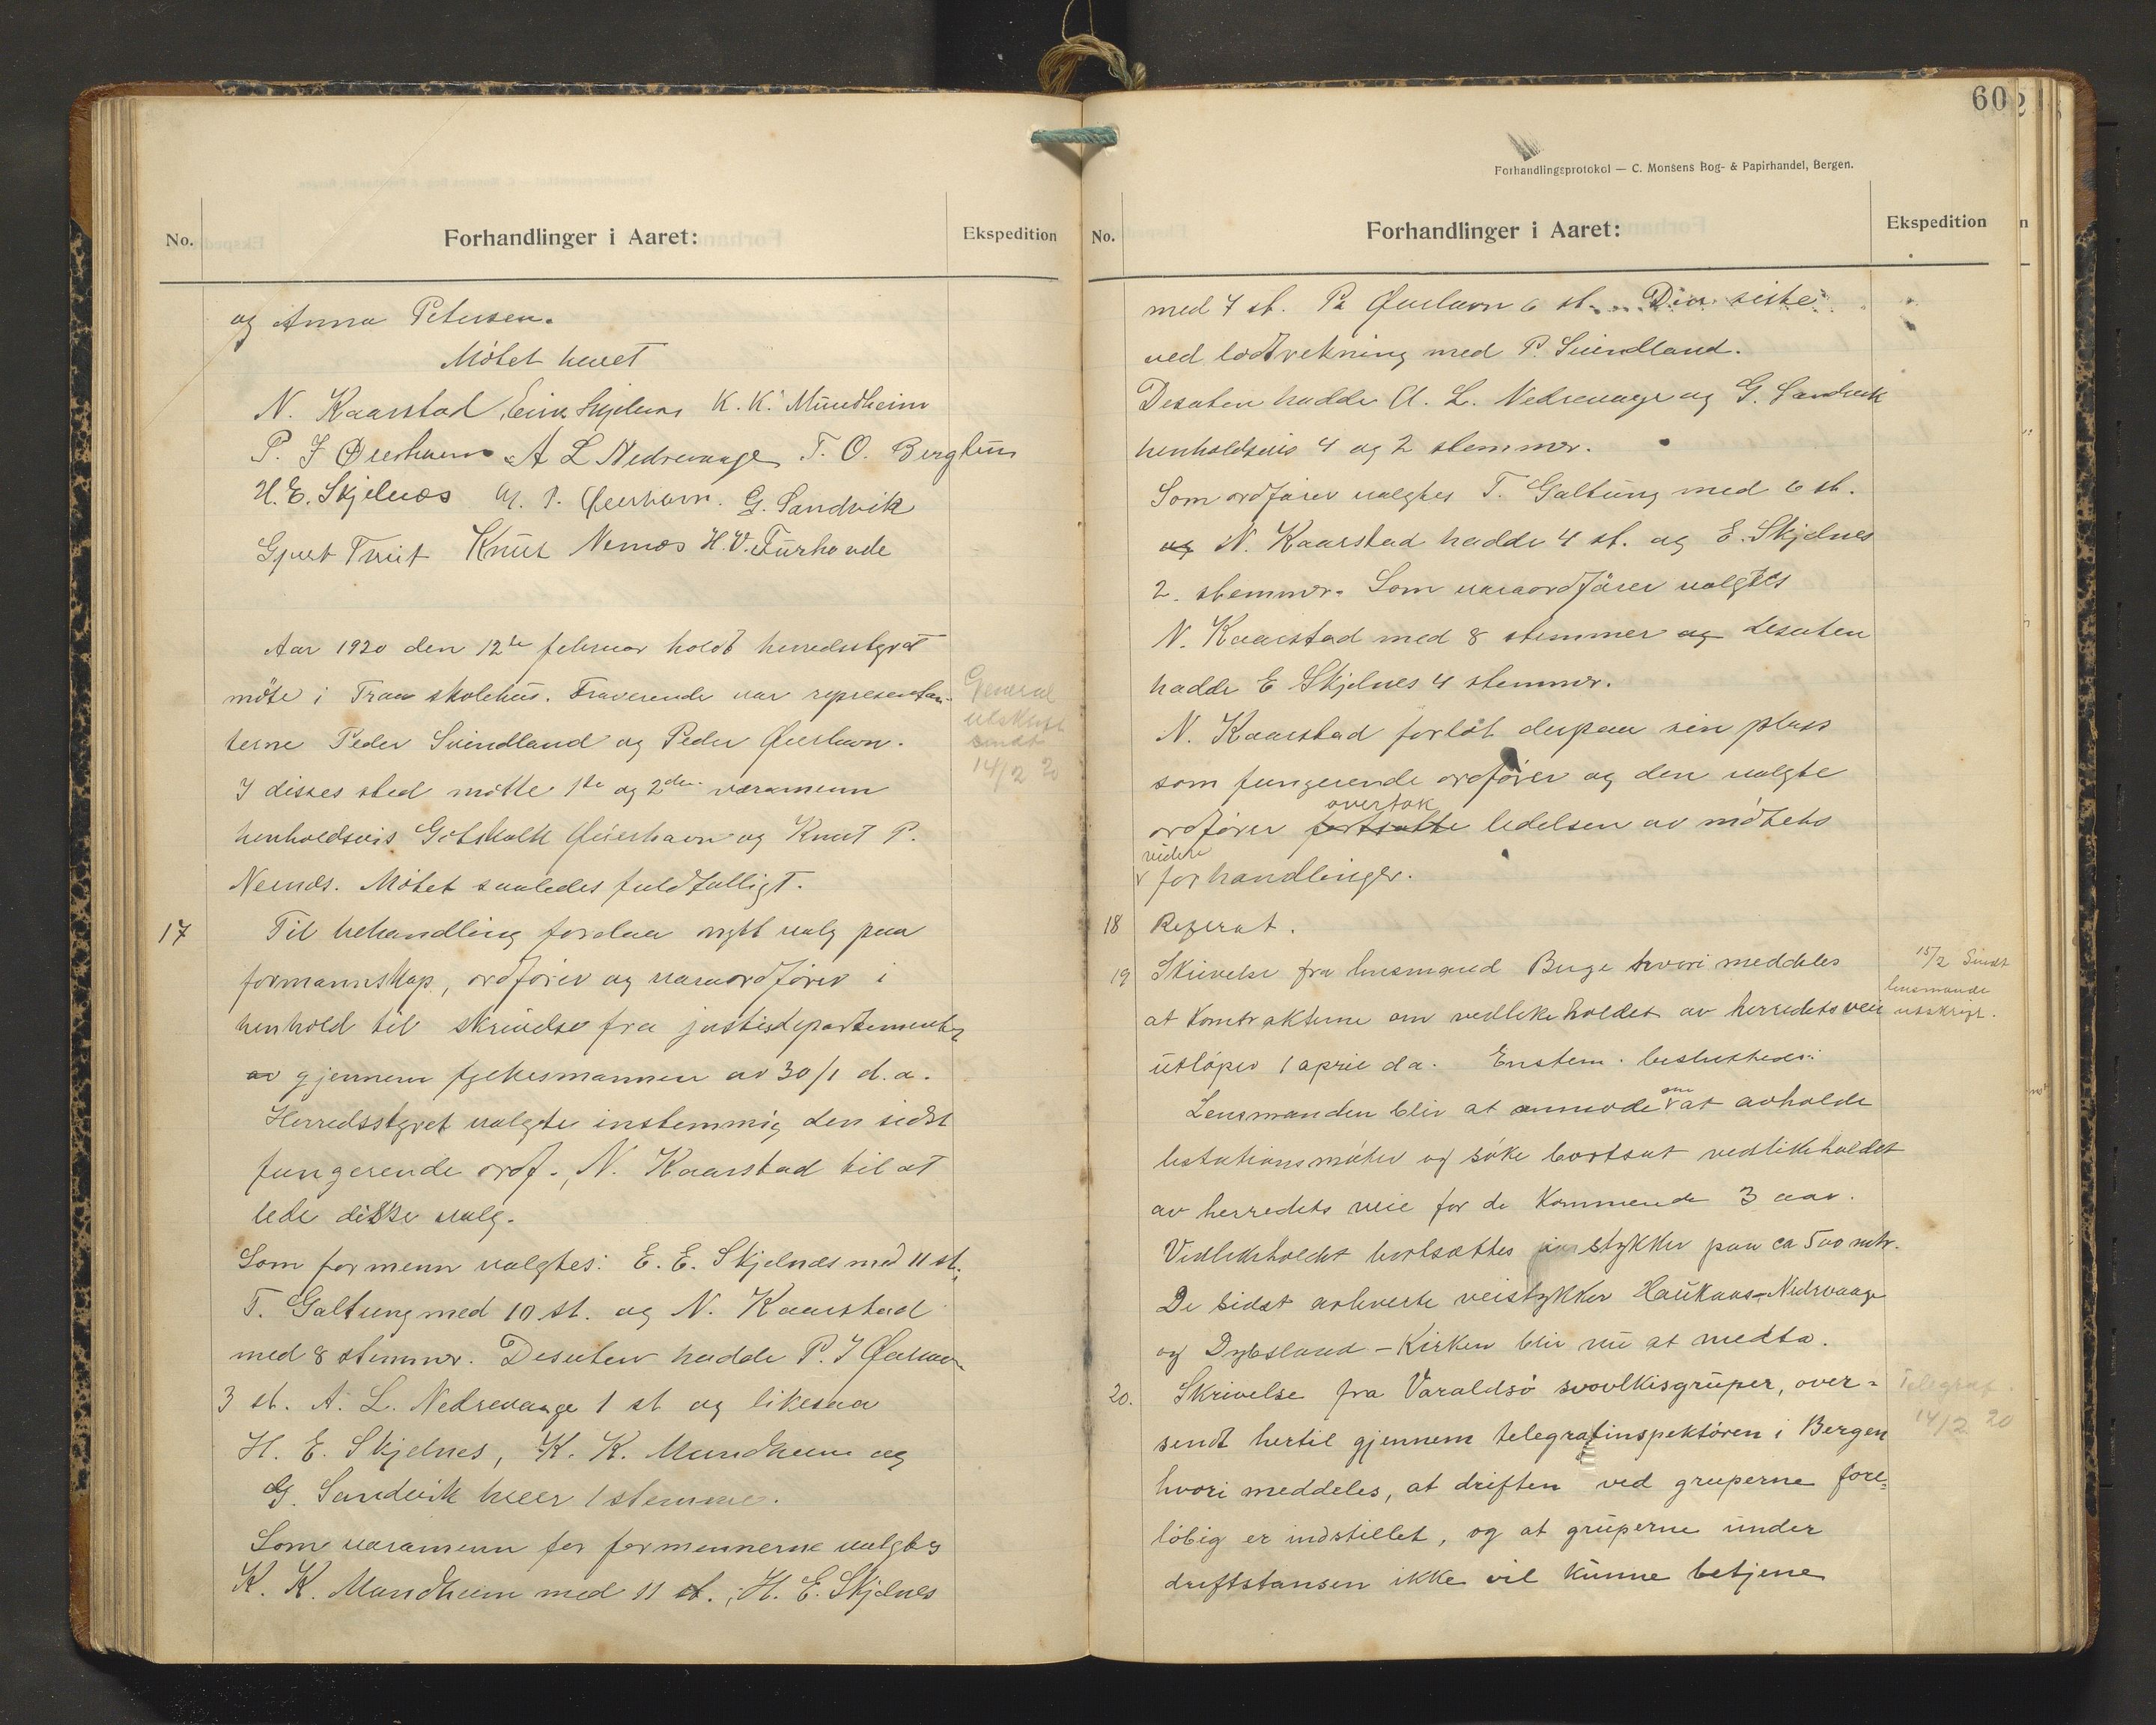 No.
Forhandlinger i Aaret:
Ekspedition
og Anna Petersen.
Mötet hevet
N. Kaarstad Eirik Skjelnes K. K. Mundheim
P. J Øierhavn A L Nedrevaage T. O. Bergtun
H. E. Skjelnæs G. P. Øierhavn. G. Sandvik
Gjert Tveit Knut Nernæs H. V. Furhovde
Aar 1920 den 12te februar holdt herredstyret
möte i Traa skolehus. Fraverende var representan-
terne Peder Svindland og Peder Øierhavn.
I disses sted mötte 1te og 2den varamenn
henholdsvis Gotskalk Øierhavn og Knut P.
Nernæs. Mötet saaledes fuldtalligt.
General
utskrift
sendt
14/2 20
17 Til behandling forelaa nytt valg paa
formannskap, ordförer og varaordförer i
henhold til skrivelse fra justisdepartementet
av gjennem fylkesmannen av 30/1 d.a.
Herredsstyret valgte instemmig den sidst
fungerende ordf., N. Kaarstad til at
lede disse valg.
Som formenn valgtes: E. E. Skjelnæs med 11 st.,
T. Galtung med 10 st. og N. Kaarstad
med 8 stemmer. Desuten hadde P. J Øierhavn
3 st. A. L. Nedrevaage 1 st og likesaa
H. E. Skjelnes, K. K. Mundheim og
G. Sandvik hver 1 stemme.
Som varamenn for formennerne valgtes
K. K. Mundheim med 11 st., H. E. Skjelnes
60
Forhandlingsprotokol — C. Monsens Bog- & Papirhandel, Bergen.
No.
Forhandlinger i Aaret:
Ekspedition
med 7 st. P. Øierhavn 6 st. Den siste
ved lodtrekning med P. Svindland.
Desuten hadde A. L. Nedrevaage og G. Sandvik
henholdsvis 4 og 2 stemmer.
Som ordförer valgtes T. Galtung med 6 st.
og N. Kaarstad hadde 4 st. og E. Skjelnes
2. stemmer. Som varaordförer valgtes
N. Kaarstad med 8 stemmer og desuten
hadde E Skjelnes 4 stemmer.
N. Kaarstad forlöt derpaa sin plass
som fungerende ordförer og den valgte
overtok
ordförer fortsatte ledelsen av mötets
videre
forhandlinger.
18 Referat.
19 Skrivelse fra lensmand Buge hvori meddeles
at kontrakterne om vedlikeholdet av herredets veie
utlöper 1 april d a. Enstem. besluttedes:
15/2 Sendt
lensmande
utskrift.
Lensmanden blir at anmode om at avholde
lisitationsmöter og söke bortsat vedlikeholdet
av herredets veie for de kommende 3 aar.
Vedlikeholdet bortsættes i stykker paa ca 500 mtr.
De sidst avleverte veistykker Haukaas-Nedrevaage
og Dybsland - Kirken blir nu at medta.
20. Skrivelse fra Varaldsö svovlkisgruper, over-
sendt hertil gjennem telegrafinspektören i Bergen
hvori meddeles, at driften ved gruperne fore-
löbig er indstillet, og at gruperne under
driftstansen ikke vil kunne betjene
Telegraf.
14/2 20